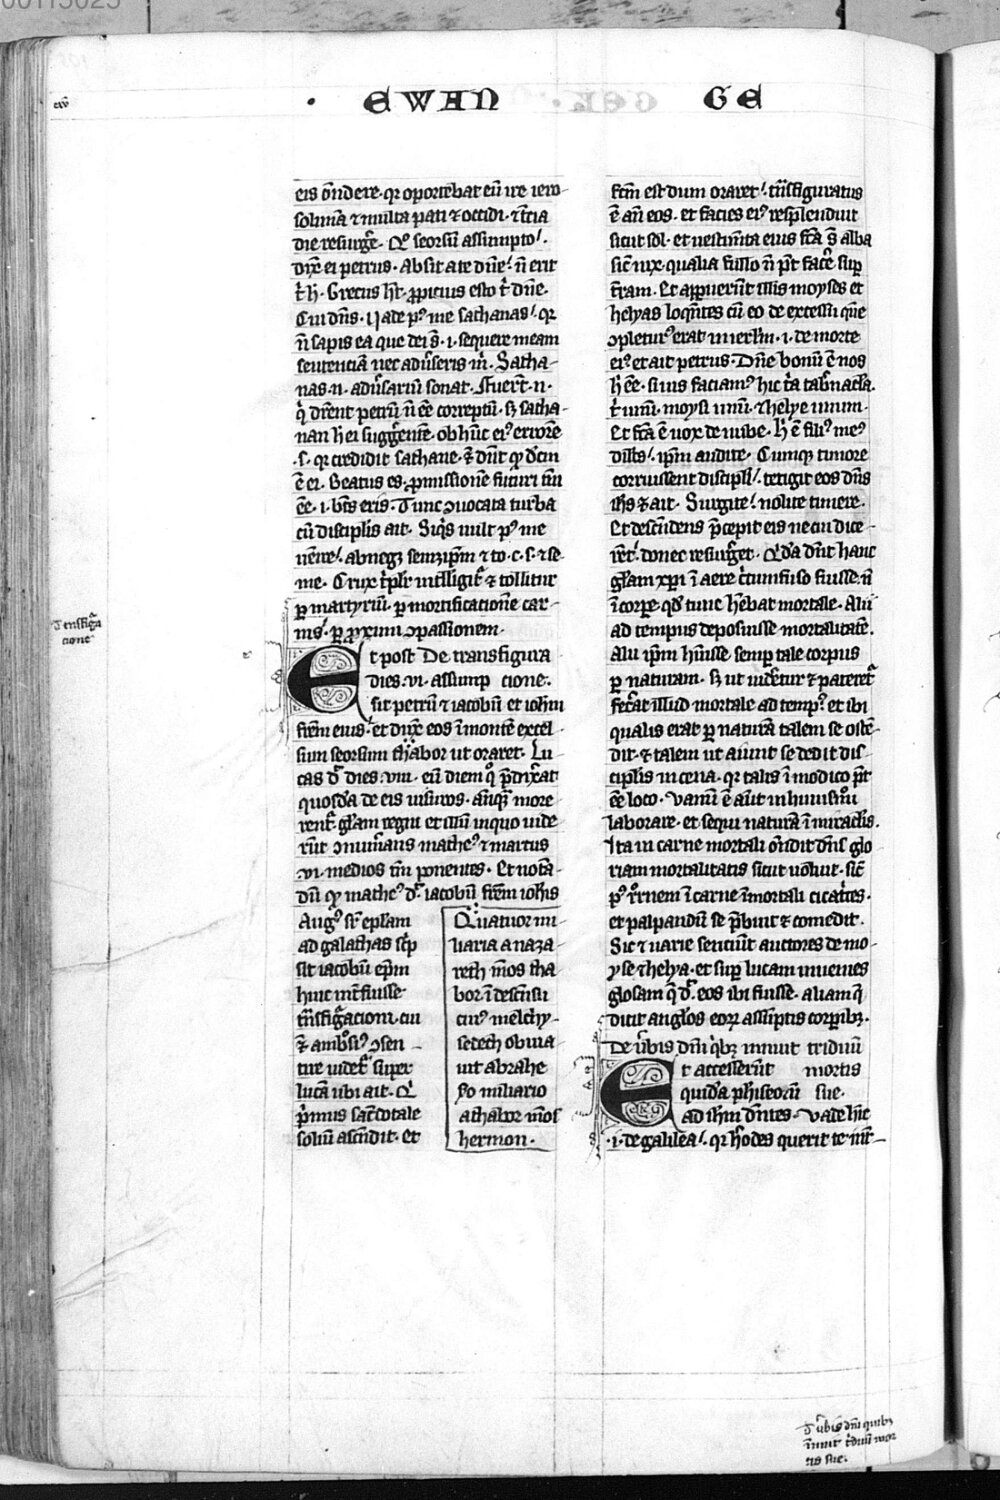 EWAN GE
eis oñdere · qr oportebat eũ ire iero-
solimã ⁊ multa pati ⁊ occidi · ⁊ t̃cia
die resurg̃e · Qd̃ seorsũ assumpto .
dix̃ ei petrus · Absit a te dñe ñ erit
t̾ h̾ · Grecus ht̃ · ꝓpicius esto t̾ dñe ·
Cui dñs · Uade pꝰ me sathanas qr
ñ sapis ea que dei s̃ · i · sequere meam
sentenciã nec adũseris m̾ · Satha-
nas · n · adũsariũ sonat · Fuer̃t · n ·
q̾ dr̃ent petrũ ñ ẽe correptũ · sꝫ satha-
nan h̾ ei sugg̃ente · ob hũc eiꝰ errorẽ
· s · qr credidit sathane · ⁊ dñt qđ dc̃m
ẽ ei · Beatus es · ꝓmissionẽ futuri tm̃
ẽe · i · bt̃s eris · Tunc ꝯuocata turba
cũ discipl̃is ait · Siq̾s uult pꝰ me
uẽire abnegꝫ semetip̃m ⁊ to · c · s · ⁊ se-
me · Crux t̾pl̾r intelligit̾ ⁊ tollitur
ꝑ martyriũ · ꝑ mortificationẽ car-
nis · ꝑ ꝓximi ꝯpassionem ·
Et post De transfigura
dies · vi · assump cione ·
sit petrũ ⁊ iacobũ et ioh̃m
frẽm eius · et dux̃ eos ĩ montẽ excel
sum seorsum thabor ut oraret · Lu
cas d̃r dies · viii · eũ diem q̾ p̃dix̃at
quosdã de eis uisuros · anteq̃ more
rent̃ · glãm regni et illũ in quo uide
rũt ꝯnumãns matheꝰ ⁊ marcus
vi · medios tm̃ ponentes · Et notã-
dũ qđ matheꝰ d̾r iacobũ frẽm ioh̃is
Augꝰ sr̃ epl̃am
ad galathas sc̃p
sit iacobũ ep̃m
huic int̃fuisse
t̾nsfig̃acioni · cui
⁊ ambr̃siꝰ ꝯsen-
tire uidet̾ super
lucã ubi ait · Q̾
p̃mus sac̃dotale
soliũ asc̃ndit · et
Quatuor mi
liaria a naza-
reth mõs tha
bor ĩ descẽsu
cuiꝰ melchy-
sedech obuia
uit abrahe
s̾o miliario
a thabor mõs
hermon ·
fc̃m est dum oraret t̾nsfiguratus
ẽ añ eos · et facies eiꝰ resplenduit
sicut sol · et uestim̃ta eius fc̃a s̃ alba
sic̃ nix · qualia fullo ñ pt̃ fac̃e suꝑ
t̃ram · Et apparuer̃t illis moyses et
helyas loqũntes cũ eo de excessu quẽ
ꝯpleturꝰ erat in ierl̃m · i · de morte
eiꝰ et ait petrus · Dñe bonũ ẽ nos
h̾ ẽe · si uis faciamꝰ hic t̾a tab̾nac̃la ·
t̾ unũ · moysi unũ · ⁊ helye unum ·
Et fc̃a ẽ uox de nube · h̾ ẽ filiꝰ meꝰ
dil̃ts ip̃m audite · Cumq̃ timore
corruissent discipl̃i tetigit eos dñs
ih̃s ⁊ ait · Surgite nolite timere ·
Et descẽdens p̃cepit eis ne cui dice-
rẽt donec resurg̾et · Qdã dñt hanc
glãm xp̃i ĩ aere c̾cumfuso fuisse · ñ
ĩ corpe · qd̾ tunc h̾ebat mortale · Alii
ad tempus deposuisse mortalitatẽ ·
Alii ip̃m h̾uisse semꝑ tale corpus
ꝑ naturam · sꝫ ut uid̾etur ⁊ pateret̾
fec̾at illud mortale ad tempꝰ · et ibi
qualis erat ꝑ naturã talem se ostẽ-
dit · ⁊ talem ut aiunt se dedit dis-
cipl̃is in cena · qr talis ĩ modico pt̃
ẽe loco · Vanũ ẽ aut̃ in huiusm̾i
laborare · et sequi naturã ĩ mirac̃lis ·
Ita in carne mortali oñdit dñs glo
riam mortalitatis sicut uoluit · sic̃
pꝰ r̃r̃nem ĩ carne ĩmortali cicat̾ces ·
et palpandũ se p̃buit ⁊ comedit ·
Sic ⁊ uarie senciũt auctores de mo-
yse ⁊ helya · et suꝑ lucam inuenies
glosam q̃ d̾r · eos ibi fuisse · aliam q̃
dicit ang̃los eoꝝ assũptis corp̃ibꝫ ·
De ũbis dñi q̾bꝫ innuit triduũ
Et accesserũt mortis
quidã phiseoꝝ sue ·
ad ih̃m dñtes · Vade h̾ic
· i · de galilea qr h̾odes querit te int̾-
T̾nsfig̃a
cione
D̾ ũbis dñi quibꝫ
ĩnuit t̾duũ mor
tis sue ·